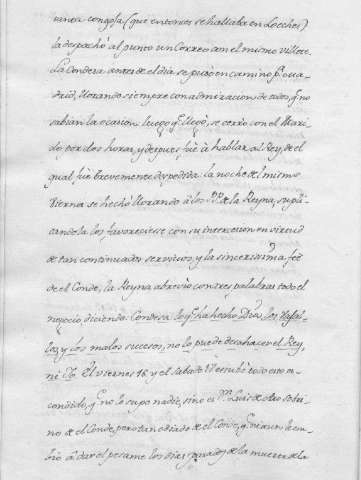 congosa (que entonces se hallaba en Loeches)
la despachó al punto un Correo con el mismo villete.
La Condesa antes de el dia se puso en camino pª Ma-
drid, llorando siempre con admiracion de todos, qe no
sabian la ocasion. luego qe llegó, se cerró con el Mari-
do por dos horas, y despues fué à hablar al Rey, de el
qual, fue brevemente despedida. la noche del mismo
Vierna se hechó llorando à los Ps de la Reyna, supli-
candola los favoreciese con su intercesion en virtud
de tan continuados servicios, y la sincerisima fee
de el Conde, la Reyna abrevió con tres palabras todo el
negocio, diciendo: Condesa lo qe ha hecho Dios, los Vasa-
llos, y los malos sucesos, no lo puede deshacer el Rey,
ni Yo. El viernes 16 y el sabado 17 estubo todo es-
condido, qe no lo supo nadie, sino es Dn Luis de Aro sobri-
no de el Conde, pero tan odiado de el Conde, qe ni aun le em-
bió à dar el pesame los dias pasados de la muerte de la